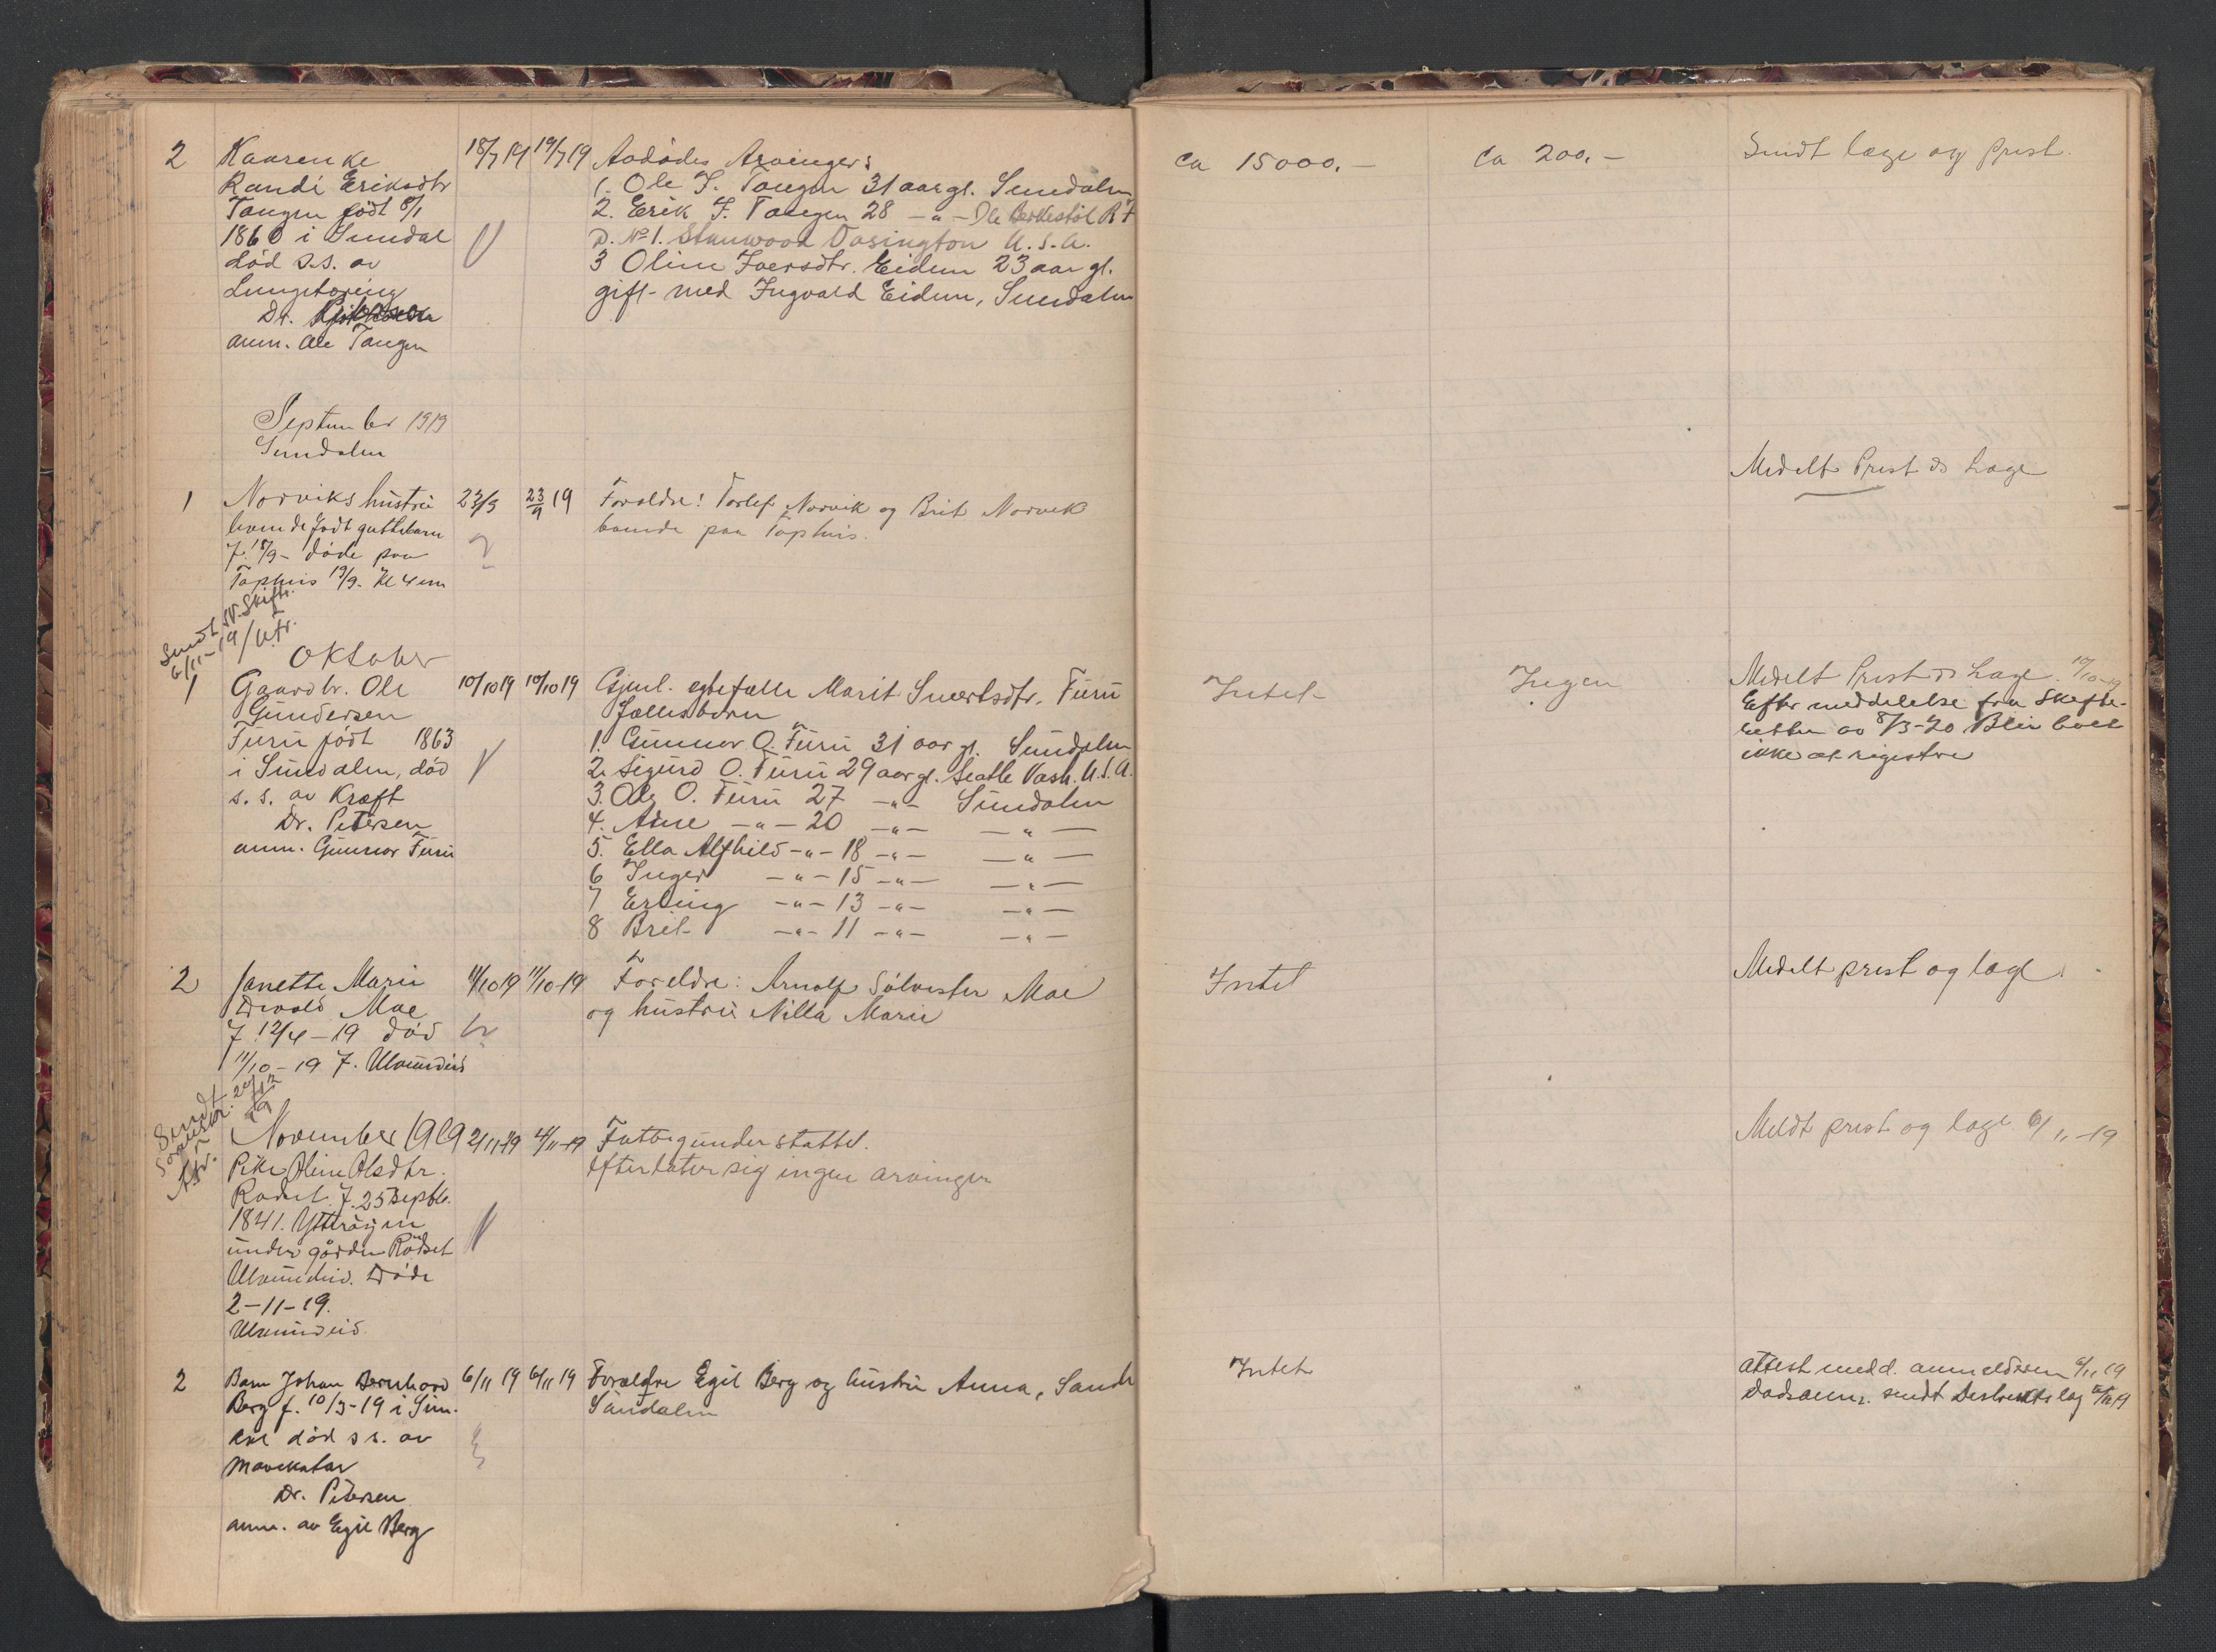 2 Kaarenke 18/7 19 19/7 19 Avdødes Arvinger:
Randi Eriksdtr 1. Ole I. Tangen 31 aar gl. Sundalen
Tangen født 8/1 2. Erik I. Tangen 28 —„— Ole Berkestöl R. F
1860 i Sundal D. No 1. Stanwood Vasington U.S.A.
død s.s. av 3 Oline Iversdtr. Eidem 23 aar gl.
Lungetæring gift med Ingvald Eidem, Sundalen
Dr.
anm. Ole Tangen
ca 15000.— ca 200.— Sendt læge og prest.
September 1919
Sundalen
1 Norviks hustru 23/9 23/9 19 Foreldre: Torlef Norvik og Brit Norvik
hvende født guttebarn boende paa Tophus.
f. 18/9 - døde paa
Tophus 19/9. Kl 4 em
Medelt Prest & Læge
Sendt Skiftr.
6/11-19/
Oktober
1 Gaardbr. Ole 10/10 19 10/10 19 Gjenl. egtefælle Marit Sivertsdtr. Furu
Gundersen Fællesbarn
Furu født 1863 1. Gunnar O. Furu 31 aar gl. Sundalen
i Sundalen, død 2. Sigurd O. Furu 29 aar gl. Seatle Vash. U.S.A.
s. s. av Kræft 3. Ole O. Furu 27 —„— Sundalen
Dr. Petersen 4. Ane —„— 20 —„— —„—
anm. Gunnar Furu 5. Ella Alfhild —„— 18 —„— —„—
6 Inger —„— 15 —„— —„—
7 Erling —„— 13 —„— —„—
8 Brit —„— 11 —„— —„—
Intet Ingen Medelt Prest & Læge. 10/10-19
Efter meddelelse fra Skifte-
retten av 8/3-20 Blir boet
ikke at registre
2 Janette Marie 11/10 19 11/10-19 Foreldre: Arnolf Sølvester Moe
Devold Moe og hustru Nilla Marie
f. 12/4-19 død
11/10-19 f. Ulvundeid
Intet Medelt prest og læge.
Sendt
Sorenskr. 20/12
19
November 1919 2/11-19 4/11-19 Fattigunderstøttet.
Pike Oline Olsdtr. Efterlater sig ingen arvinger
Rødset f. 25 Septbr.
1841. Ytterøyen
under gården Rødset
Ulvundeid. Døde
2-11-19.
Ulvundeid.
Meldt prest og læge 6/11-19
2 Barn Johan Bernhard 6/11 19 6/11 19 Forældre Egil Berg og hustru Anna, Sande
Berg f. 10/3-19 i Sun- Sundalen
død s s. av
Mavekatar
Dr. Petersen
anm. av Egil Berg
Intet Attest medd. anmelderen 6/11 19
Dødsanm. sendt Destriktslæg